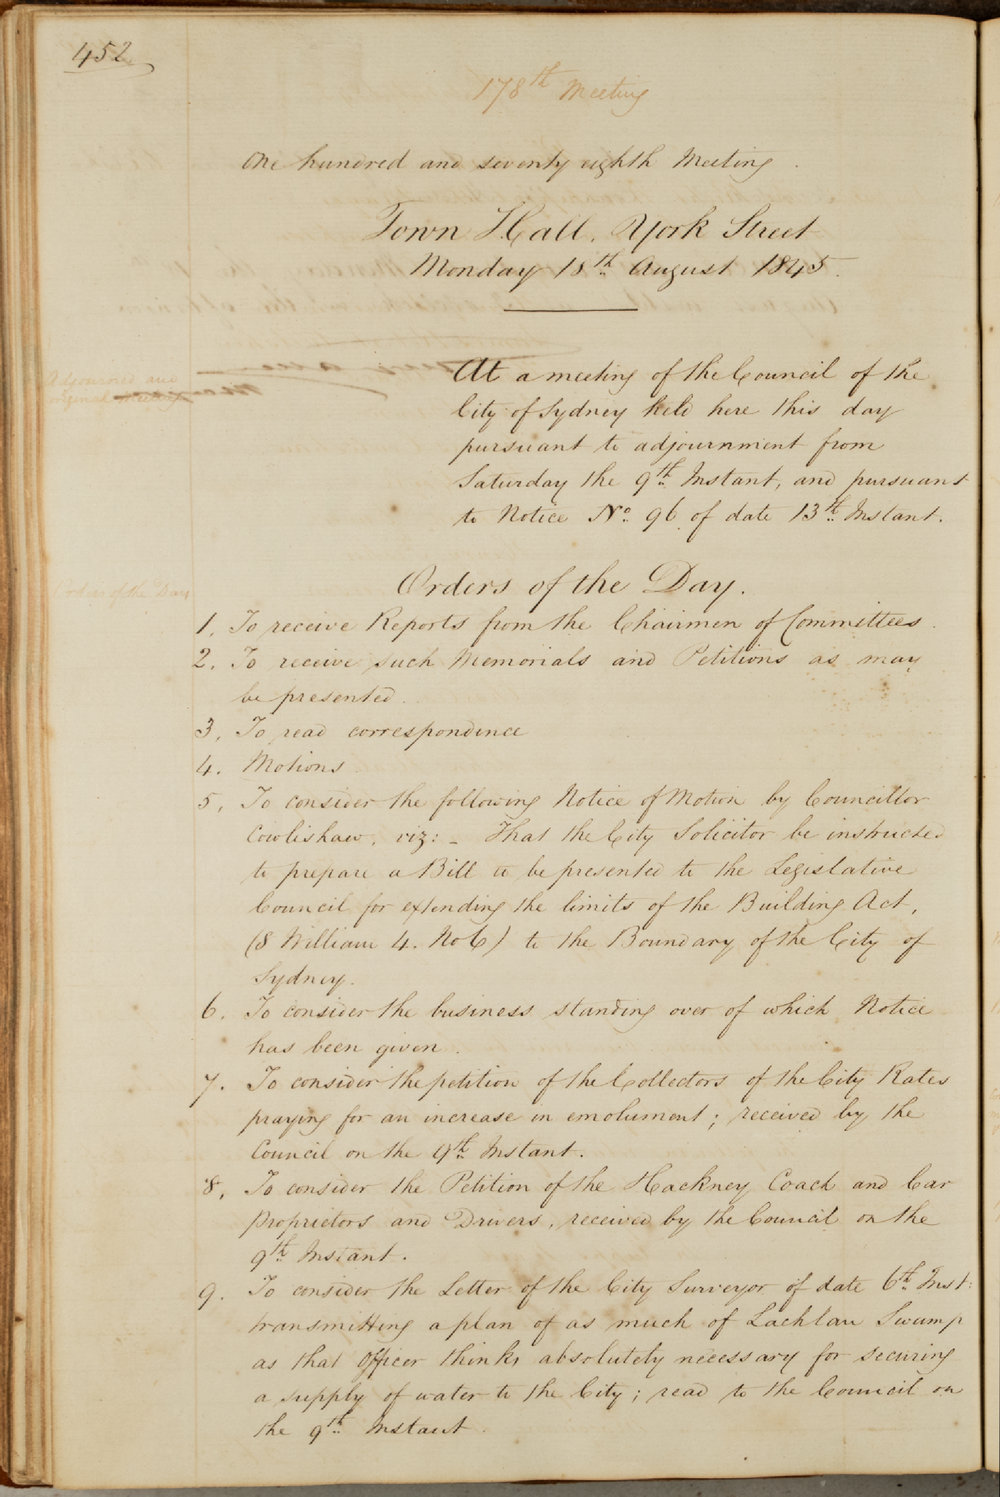 452
178th Meeting
One hundred and seventy eighth Meeting.
Town Hall, York Street
Monday 18th August 1845.
Adjourned and
original Meeting
At a meeting of the Council of the
City of Sydney held here this day
pursuant to adjournment from
Saturday the 9th Instant, and pursuant
to Notice No. 96 of date 13th Instant.
Orders of the Day
Orders of the Day.
1. To receive Reports from the Chairmen of Committees.
2. To receive such Memorials and Petitions as may
be presented.
3. To read correspondence
4. Motions
5. To consider the following Notice of Motion by Councillor
Cowlishaw, viz: - That the City Solicitor be instructed
to prepare a Bill to be presented to the Legislative
Council for extending the limits of the Building Act,
(8 William 4. No 6) to the Boundary of the City of
Sydney.
6. To consider the business standing over of which Notice
has been given.
7. To consider the petition of the Collectors of the City Rates
praying for an increase in emolument; received by the
Council on the 9th Instant.
8. To consider the Petition of the Hackney Coach and Car
Proprietors and Drivers, received by the Council on the
9th Instant.
9. To consider the Letter of the City Surveyor of date 6th Inst:
transmitting a plan of as much of Lachlan Swamp
as that Officer thinks absolutely necessary for securing
a supply of water to the City; read to the Council on
the 9th Instant.